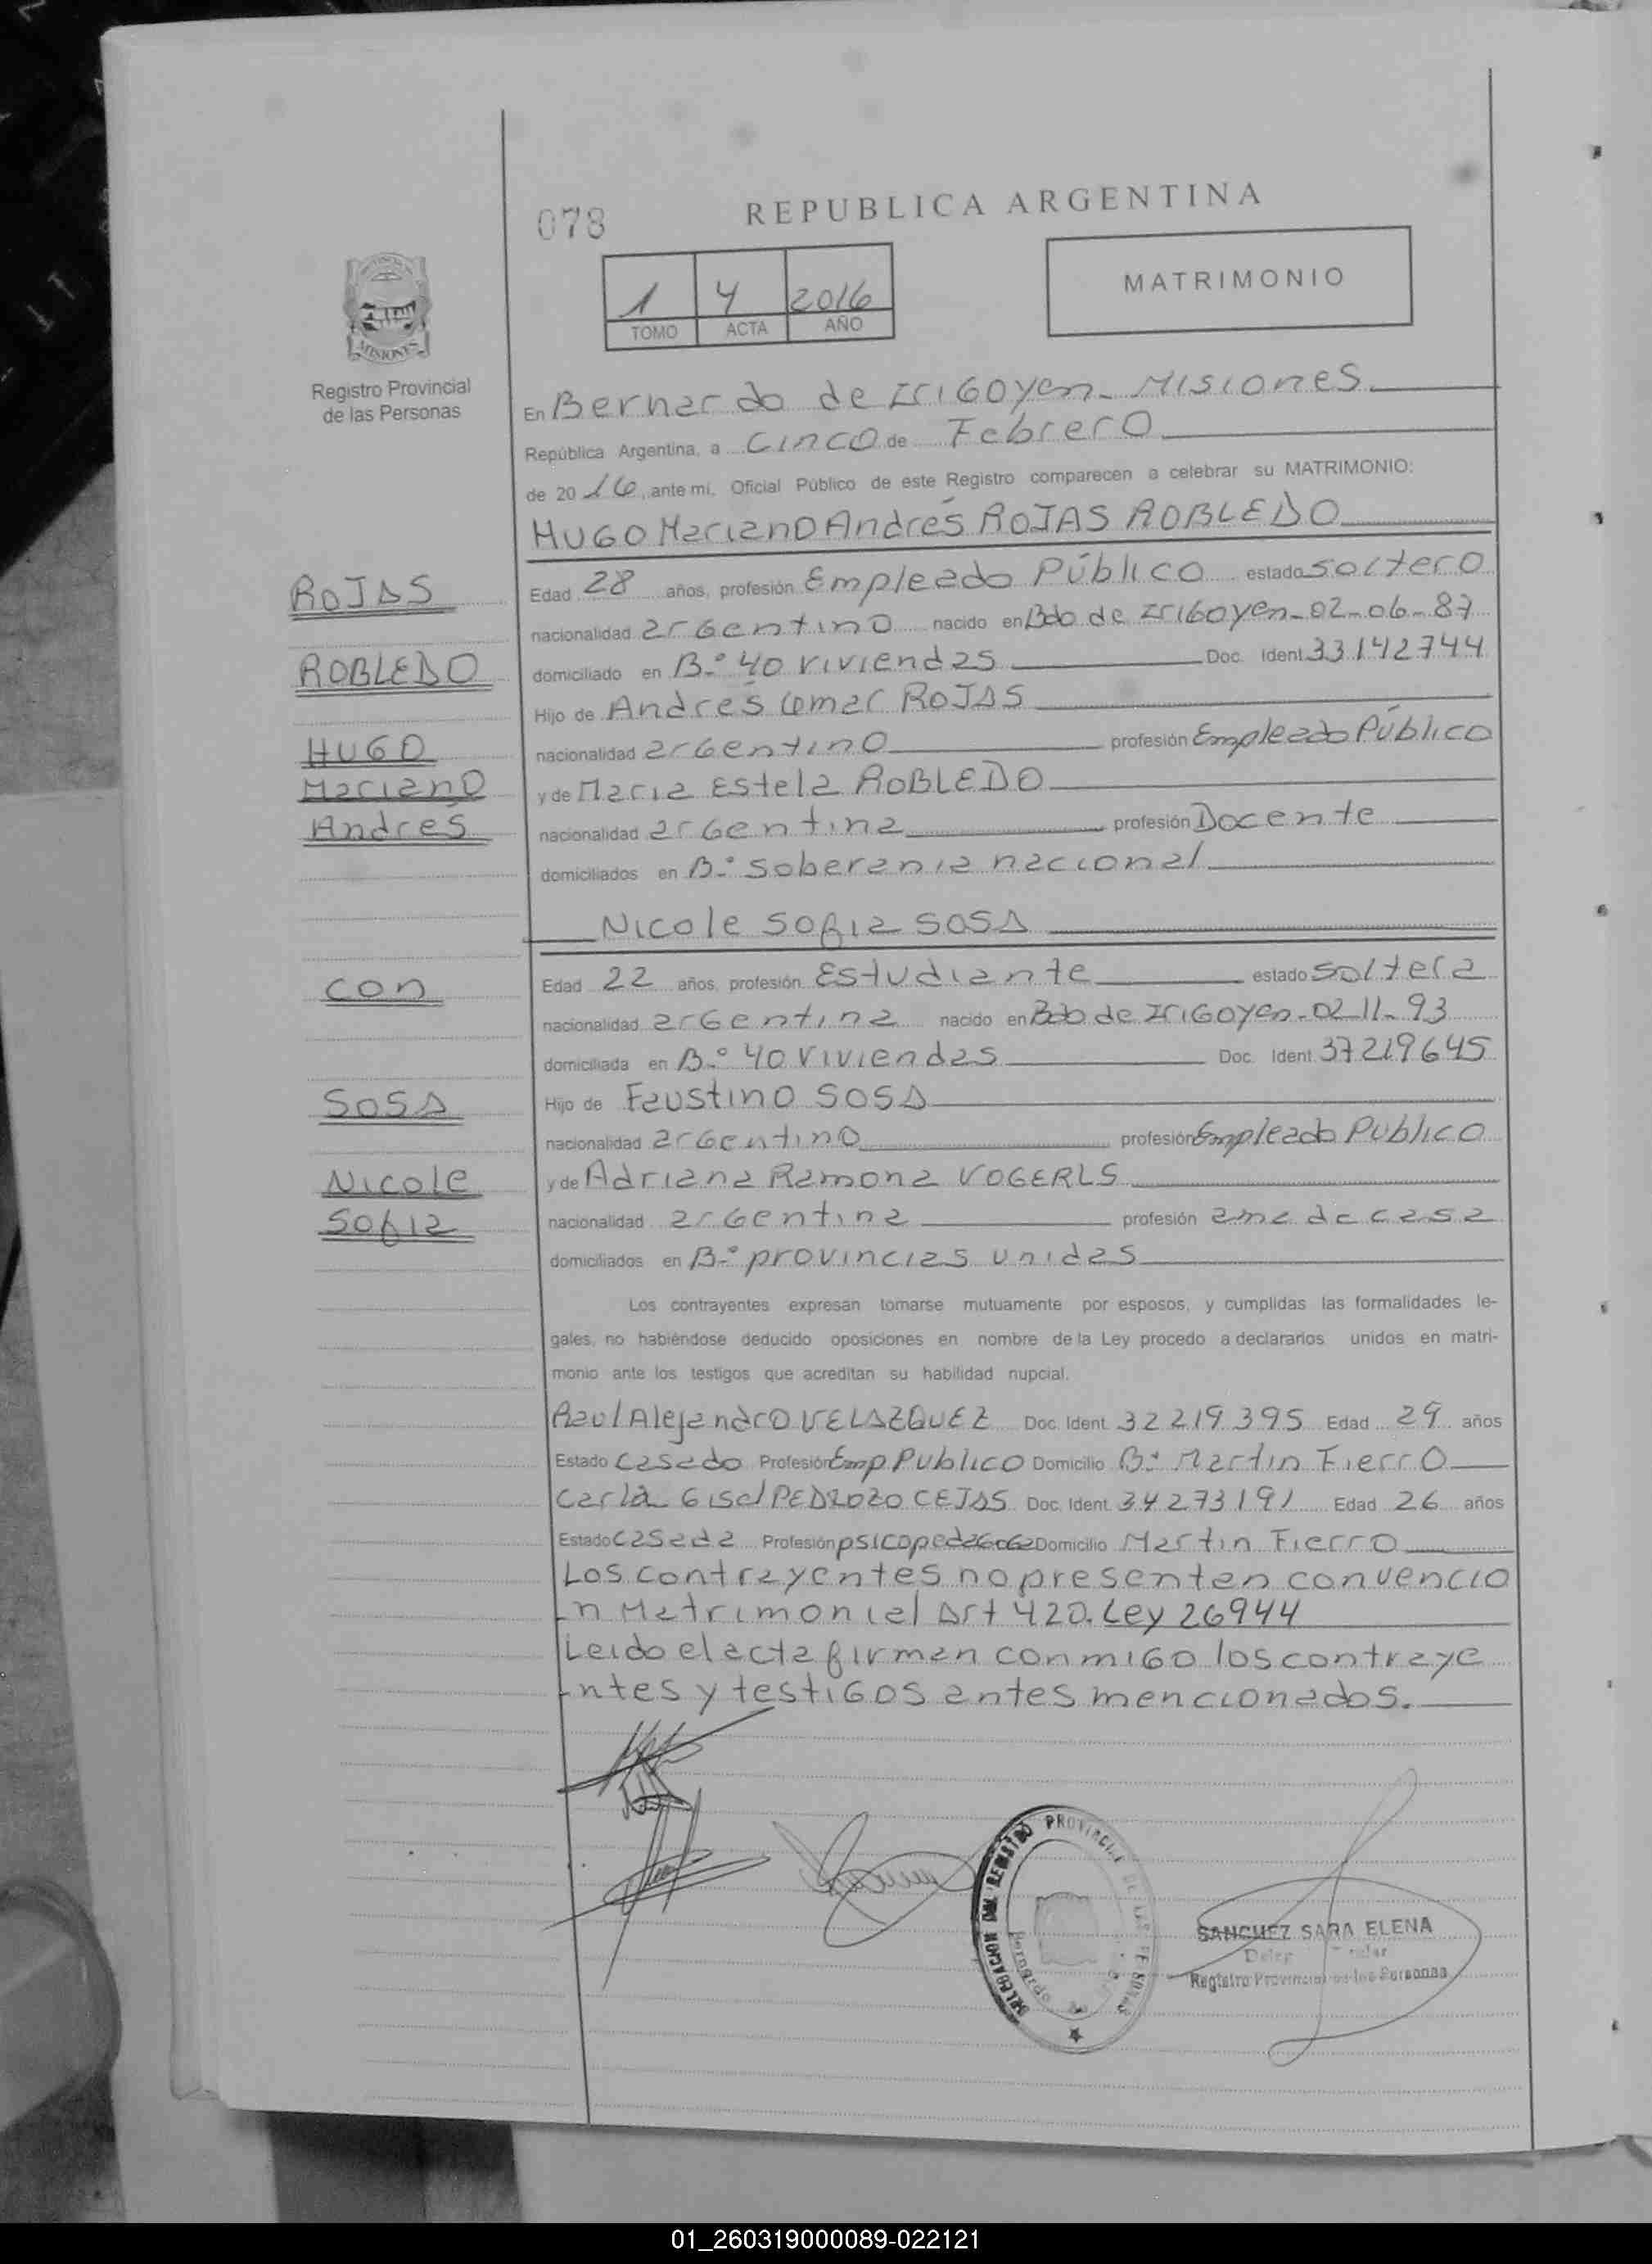 078
REPUBLICA ARGENTINA
MATRIMONIO
1 4 2016
TOMO ACTA AÑO
MISIONES
Registro Provincial
de las Personas
En Bernardo de Irigoyen - Misiones
República Argentina, a Cinco de Febrero
de 2016, ante mi, Oficial Público de este Registro comparecen a celebrar su MATRIMONIO:
HUGO Mariano Andrés ROJAS ROBLEDO
ROJAS
Edad 28 años, profesión Empleado Público estado soltero
nacionalidad argentino nacido en Bdo de Irigoyen - 02-06-87
ROBLEDO
domiciliado en B.º 40 viviendas Doc. Ident. 33142744
Hijo de Andrés Omar ROJAS
HUGO
nacionalidad argentino profesión Empleado Público
Mariano
y de Maria Estela ROBLEDO
Andrés
nacionalidad argentina profesión Docente
domiciliados en B.º Soberania nacional
Nicole Sofia SOSA
con
Edad 22 años, profesión Estudiante estado Soltera
nacionalidad argentina nacido en Bdo de Irigoyen - 02-11-93
domiciliada en B.º 40 Viviendas Doc. Ident. 37219645
SOSA
Hijo de Faustino SOSA
nacionalidad argentino profesión Empleado Publico
Nicole
y de Adriana Ramona VOGERLS
Sofia
nacionalidad argentina profesión ama de casa
domiciliados en B.º provincias unidas
Los contrayentes expresan tomarse mutuamente por esposos, y cumplidas las formalidades le-
gales, no habiéndose deducido oposiciones en nombre de la Ley procedo a declararlos unidos en matri-
monio ante los testigos que acreditan su habilidad nupcial.
Raul Alejandro VELAZQUEZ Doc. Ident. 32219395 Edad 29 años
Estado Casado Profesión Emp Publico Domicilio B.º Martin Fierro
Carla Gisel PEDROZO CEJAS Doc. Ident. 34273191 Edad 26 años
Estado Casada Profesión psicopedagoga Domicilio Martin Fierro
Los contrayentes no presentan convencio
-n Matrimonial Art 420. Ley 26944
Leido el acta firman conmigo los contraye
-ntes y testigos antes mencionados.
DELEGACION DEL REGISTRO PROVINCIAL DE LAS PERSONAS
Bernardo
SANCHEZ SARA ELENA
Registro Provincial de las Personas
01_260319000089-022121